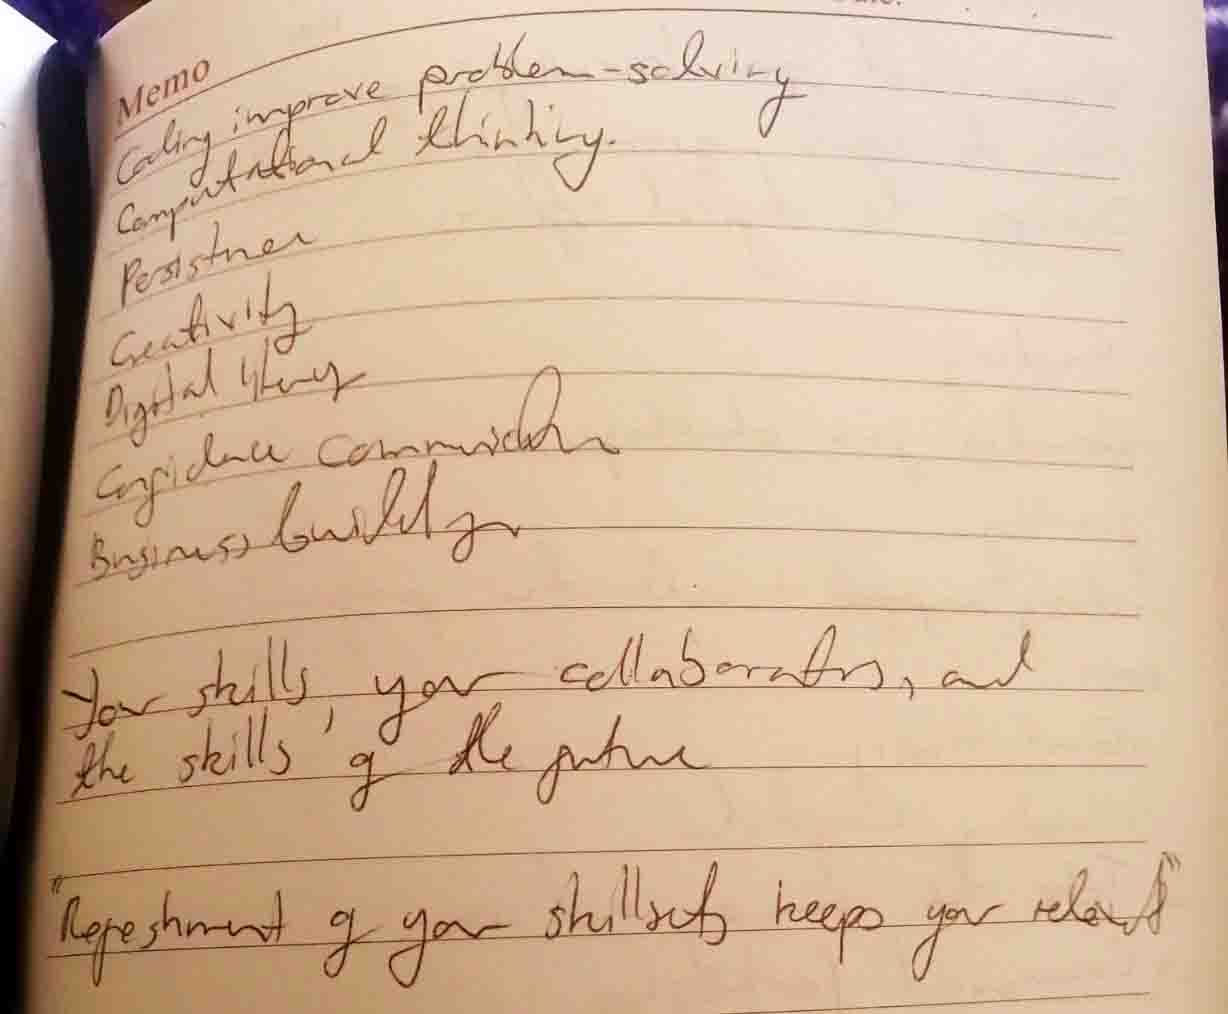 Memo
Coding improve problem-solving
Computational thinking.
Persistner
Creativity
Digital literacy
Confidence communication
Business building
Your skills, your collaborators, and
the skills of the future
"Refreshment of your skillsets keeps your relevant"